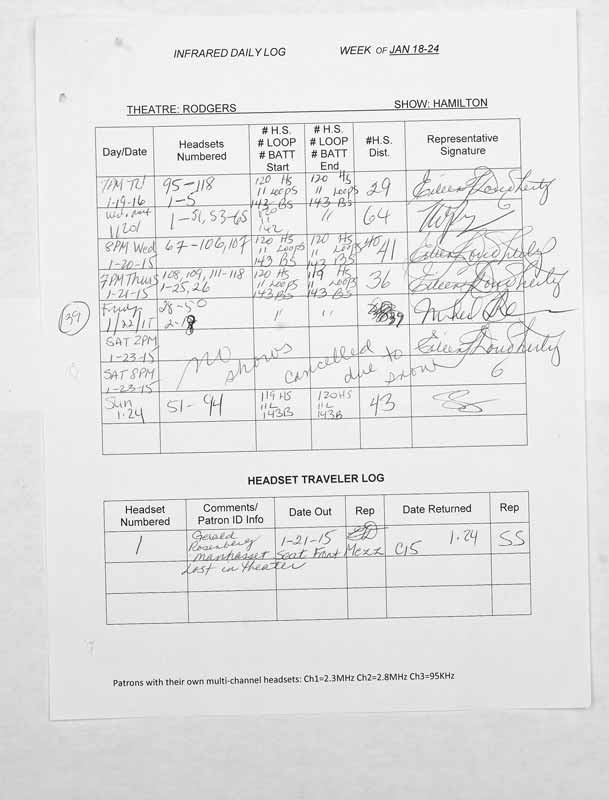 INFRARED DAILY LOG WEEK OF JAN 18-24
THEATRE: RODGERS SHOW: HAMILTON
Day/Date Headsets Numbered # H.S. # LOOP # BATT Start # H.S. # LOOP # BATT End #H.S. Dist. Representative Signature
7PM TU 1-19-16 95-118 1-5 120 HS 11 Loops 143 BS 120 HS 11 Loops 143 BS 29 Eileen Dougherty
Wed. mat 1/20/ 1-51, 53-65 120 11 142 " 64
8PM Wed 1-20-15 67-106, 107 120 HS 11 Loops 143 BS 120 HS 11 Loops 143 BS 41 Eileen Dougherty
7PM Thurs 1-21-15 108, 109, 111-118 1-25, 26 120 HS 11 Loops 143 BS 119 HS 11 Loops 143 BS 36 Eileen Dougherty
39 Friday 1/22/15 28-50 " " 39
SAT 2PM 1-23-15 no shows cancelled due to snow Eileen Dougherty
SAT 8PM 1-23-15
Sun 1.24 51-94 119 HS 11L 143B 120 HS 11L 143B 43
HEADSET TRAVELER LOG
Headset Numbered Comments/ Patron ID Info Date Out Rep Date Returned Rep
1 Gerald Rosenberg 1-21-15 ED 1.24 SS
Manhasset Seat Front Mezz C15
Lost in theater
Patrons with their own multi-channel headsets: Ch1=2.3MHz Ch2=2.8MHz Ch3=95KHz